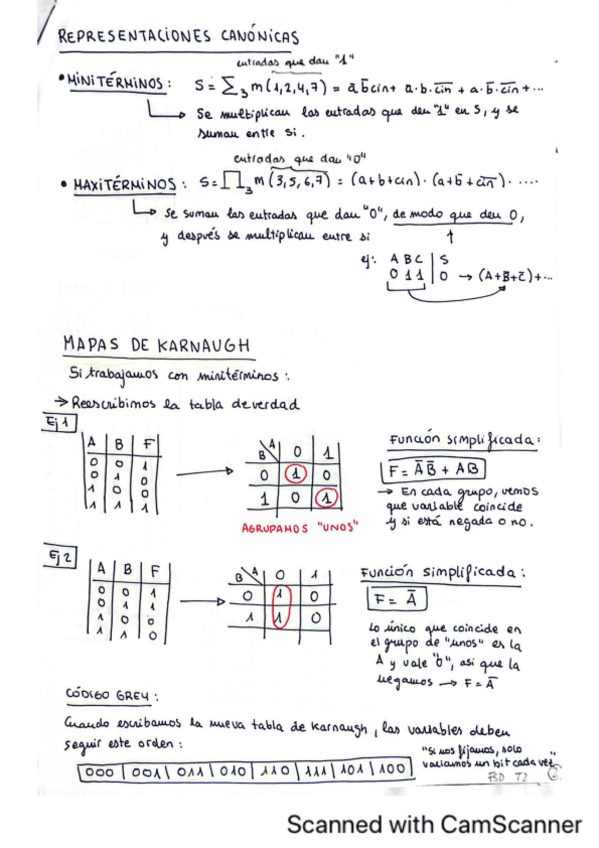 REPRESENTACIONES CANÓNICAS
entradas que dan "1"
• MINITÉRMINOS: S = ∑₃ m(1,2,4,7) = a̅b̅cin + a̅·b·c̅i̅n̅ + a·b̅·c̅i̅n̅ + ...
Se multiplican las entradas que den "1" en S, y se
suman entre si.
entradas que dan "0"
• MAXITÉRMINOS: S = ∏₃ m(3,5,6,7) = (a+b+cin)·(a+b̅+c̅i̅n̅)·....
Se suman las entradas que dan "0", de modo que den 0,
y después se multiplican entre si
ej: A B C | S
0 1 1 | 0 → (A+B̅+C̅)+...
MAPAS DE KARNAUGH
Si trabajamos con minitérminos:
→ Reescribimos la tabla de verdad
Ej 1
A | B | F
0 0 1
0 1 0
1 0 0
1 1 1
B \ A | 0 | 1
0 | 1 | 0
1 | 0 | 1
AGRUPAMOS "UNOS"
Función simplificada:
F = A̅B̅ + AB
→ En cada grupo, vemos
que variable coincide
y si está negada o no.
Ej 2
A | B | F
0 0 1
0 1 1
1 0 0
1 1 0
B \ A | 0 | 1
0 | 1 | 0
1 | 1 | 0
Función simplificada:
F = A̅
Lo único que coincide en
el grupo de "unos" es la
A y vale "0", asi que la
negamos → F = A̅
CÓDIGO GREY:
Cuando escribamos la nueva tabla de Karnaugh, las variables deben
seguir este orden:
000 | 001 | 011 | 010 | 110 | 111 | 101 | 100
"Si nos fijamos, solo
variamos un bit cada vez"
FSD T2 2
Scanned with CamScanner